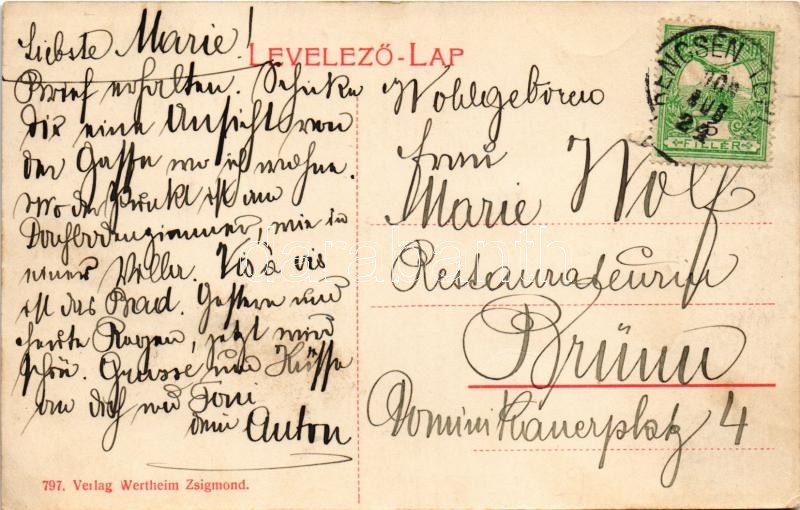 LEVELEZŐ-LAP
Liebste Marie!
Brief erhalten. Schicke
dir eine Ansicht von
der Gasse wo ich wohne.
Wo der Punkt ist am
Dachbodenzimmer, wie in
einer Villa. Vis a vis
ist das Bad. Gestern und
heute Regen, jetzt wird
schön. Grüsse und Küsse
an dich und Toni
dein Anton
797. Verlag Wertheim Zsigmond.
Wohlgeboren
Frau
Marie Wolf
Restaurateurin
Brünn
Dominikanerplatz 4
TRENCSÉN
AUG
24
FILLÉR
darabanth